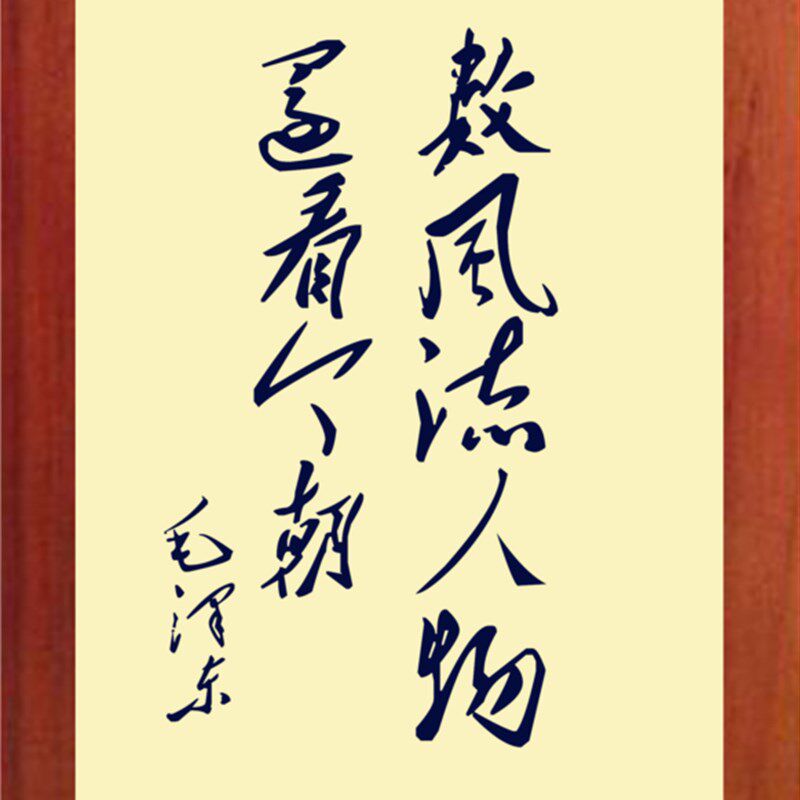 数风流人物
還看今朝
毛泽东